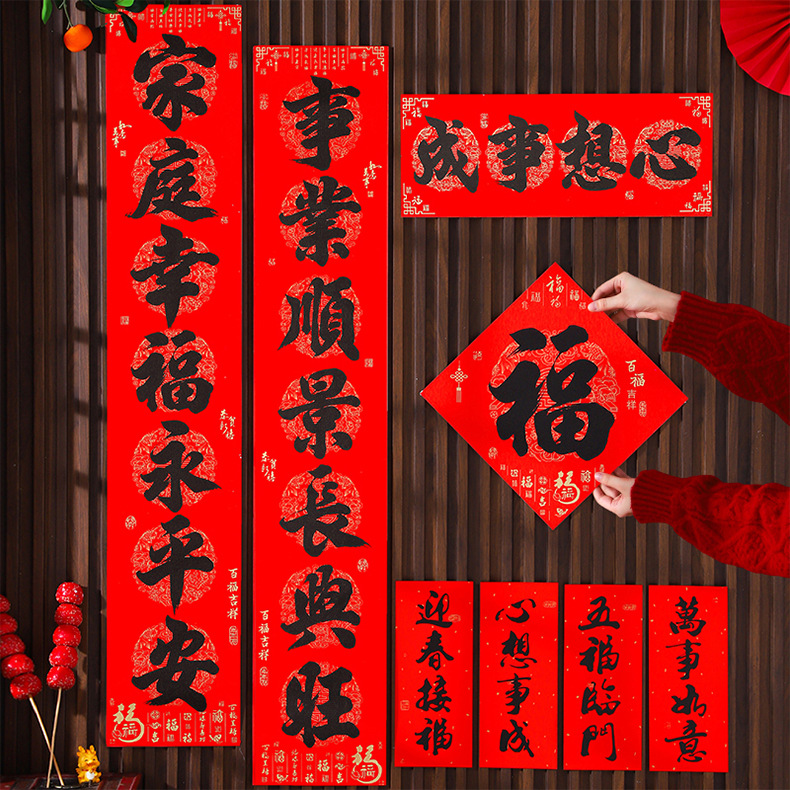 家庭幸福永平安
百福吉祥
事業順景長興旺
百福吉祥
心想事成
福
百福
吉祥
迎春接福
心想事成
五福臨門
萬事如意